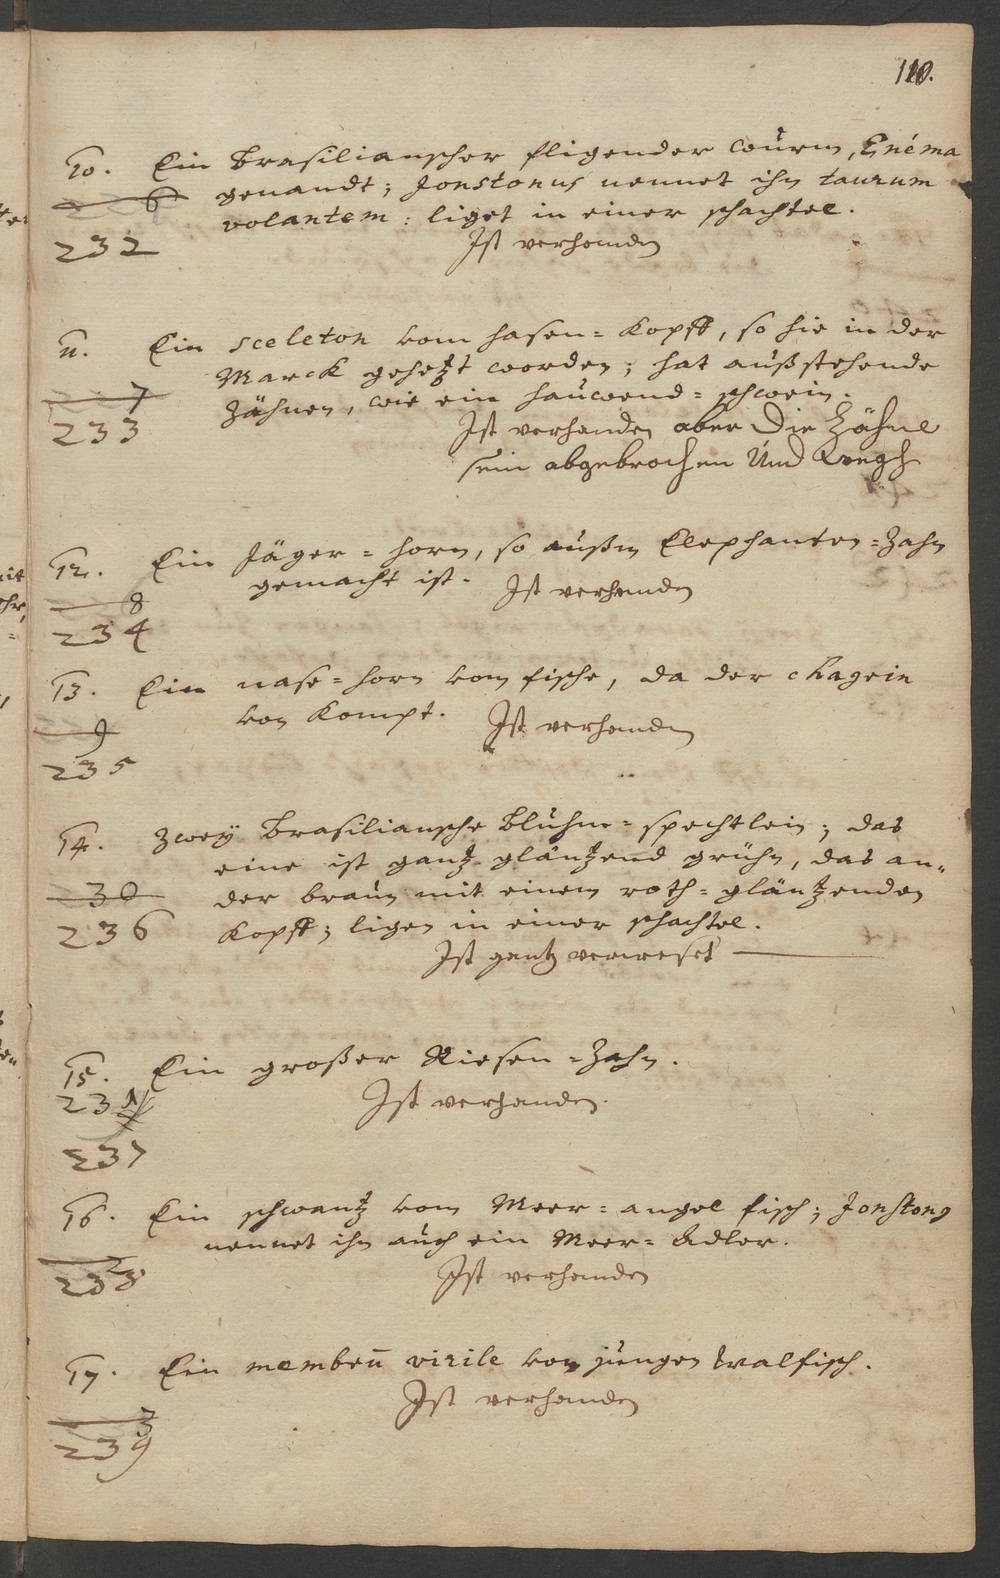 110.
10. Ein Brasilianscher fligender wurm, Enéma
6 genandt; Jonstonus nennet ihn taurum
volantem: liget in einer schachtel.
232 Ist verhanden
11. Ein sceleton vom hasen=Kopff, so hie in der
Marck gehetzt worden; hat außstehende
7 Zähnen, wie ein hauwend=schwein.
233 Ist verhanden aber Die Zähne
sein abgebrochen Und Wegh
12. Ein Jäger=horn, so außm Elephanten=Zahn
8 gemacht ist. Ist verhanden
234
13. Ein nase=horn vom fische, da der chagrin
9 von kompt. Ist verhanden
235
14. Zwey Brasiliansche Bluhm=spechtlein; das
eine ist gantz gläntzend grühn, das an=
30 der braun mit einem roth=gläntzenden
236 Kopff; ligen in einer schachtel.
Ist gantz verweset
15. Ein großer Riesen=Zahn.
231 Ist verhanden.
237
16. Ein schwantz vom Meer=angel fisch; Jonstong
nennet ihn auch ein Meer=Adler.
238 Ist verhanden
17. Ein membrū virile von jungen Walfisch.
Ist verhanden
3
239